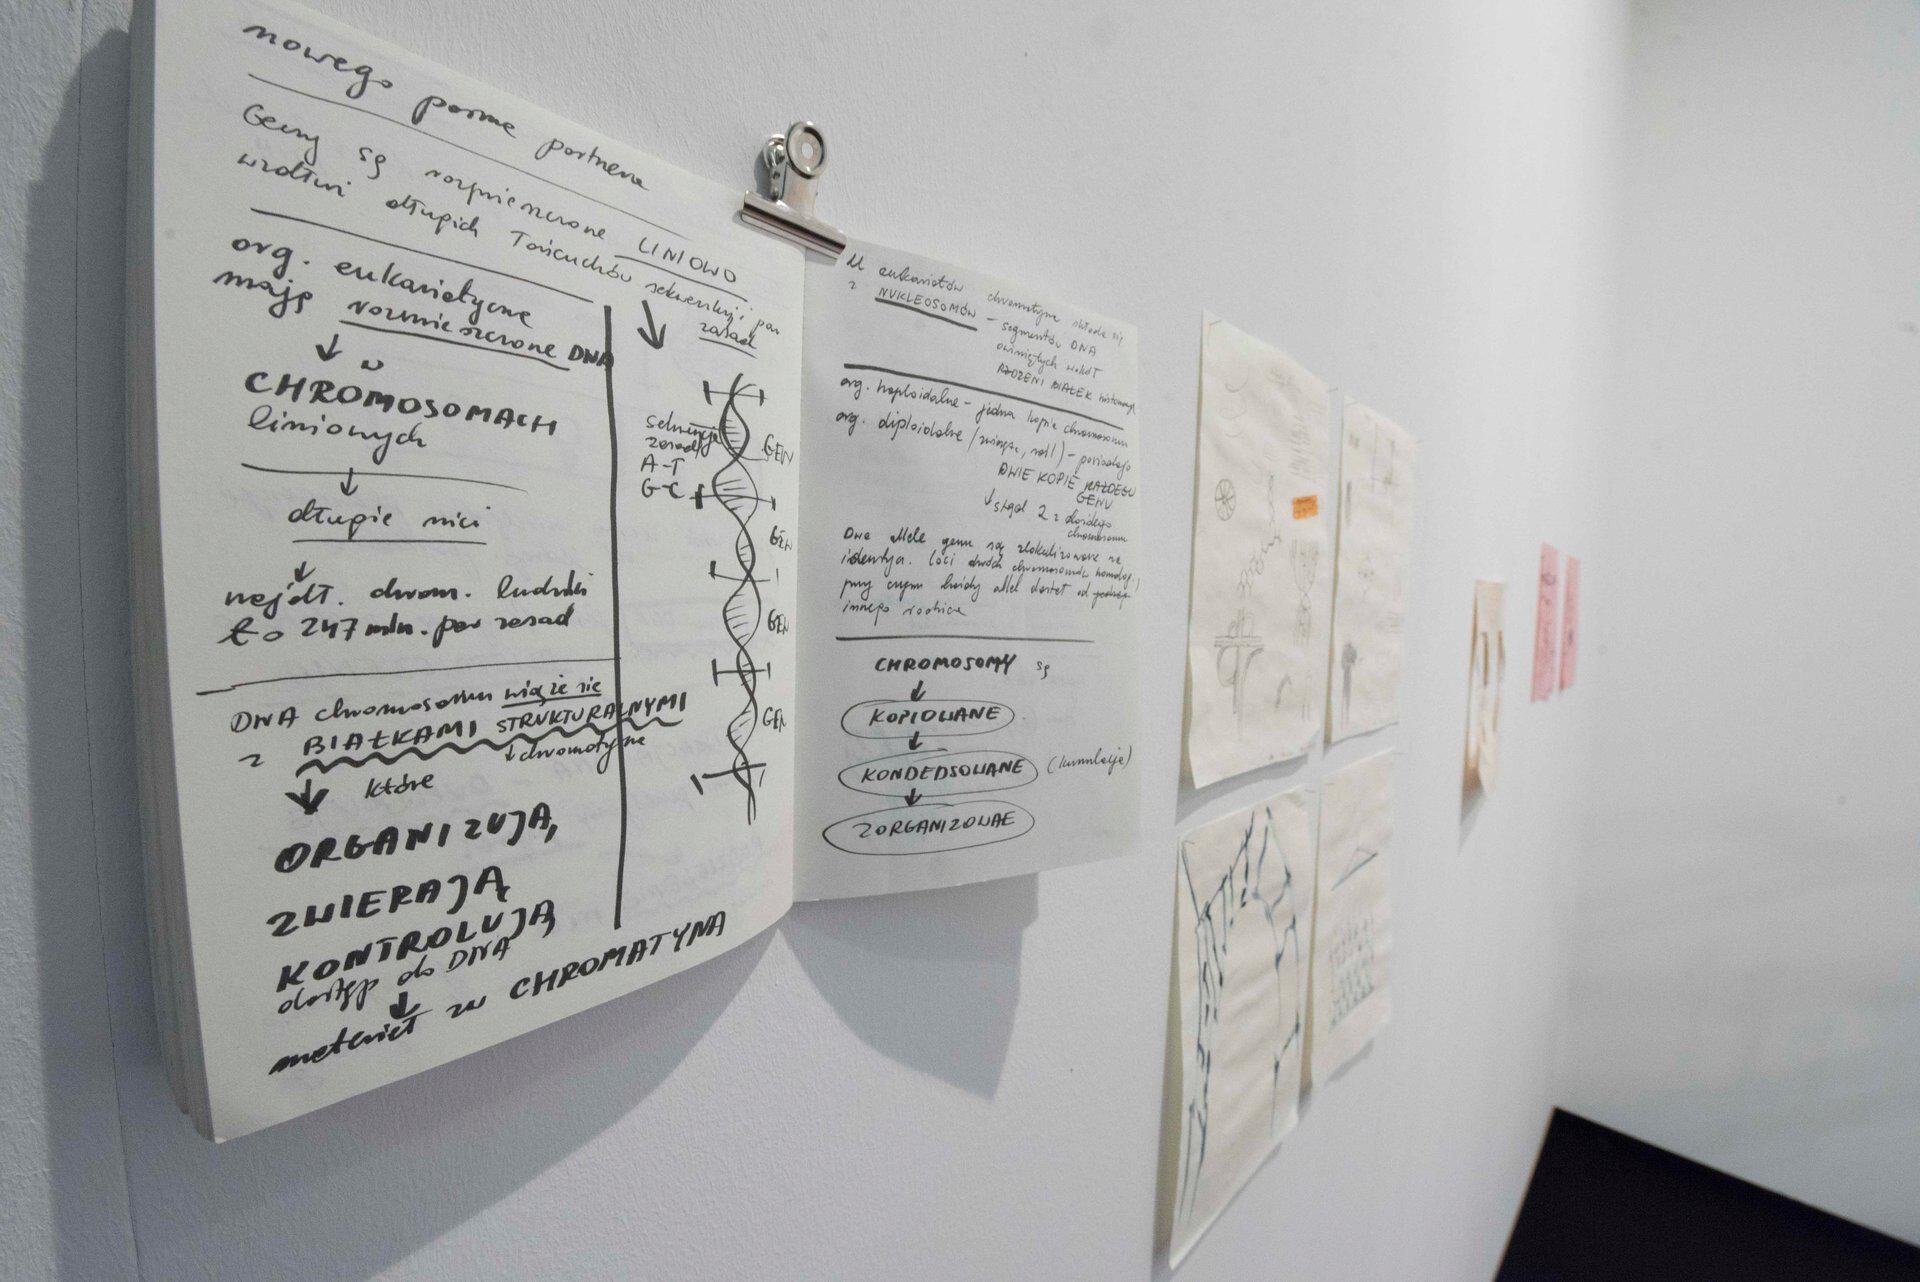 nowego pasma partnera
Geny są rozmieszczone LINIOWO
wzdłuż długich łańcuchów sekwencji par
zasad
org. eukariotyczne
mają rozmieszczone DNA
w
CHROMOSOMACH
liniowych
długie nici
najdł. chrom. ludzki
to 247 mln. par zasad
DNA chromosomu wiąże się
z BIAŁKAMI STRUKTURALNYMI
chromatynę
które
ORGANIZUJĄ,
ZWIERAJĄ
KONTROLUJĄ
dostęp do DNA
materiał zw CHROMATYNA
sekwencje
zasad
A-T
G-C
GEN
GEN
GEN
GEN
U eukariotów chromatyna składa się
z NUKLEOSOMÓW - segmentów DNA
owiniętych wokół
RDZENI BIAŁEK histonowych
org. haploidalne - jedna kopia chromosomu
org. diploidalne (zwierz., rośl) - posiadają
DWIE KOPIE KAŻDEGO
GENU
stąd 2 z każdego
chromosomu
Dwa allele genu są zlokalizowane na
identycz. loci dwóch chromosomów homolog.
przy czym każdy allel dostał od
innego rodzica
CHROMOSOMY są
KOPIOWANE
KONDEDSOWANE (kumulacja)
ZORGANIZOWAE